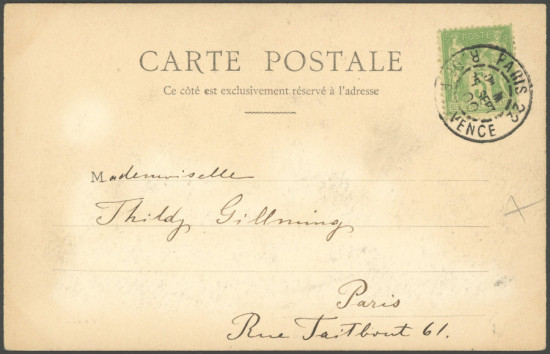 CARTE POSTALE
Ce côté est exclusivement réservé à l'adresse
POSTE
PARIS 22
SEPT
Mademoiselle
Thildy Gillming
Paris
Rue Taitbout 61.